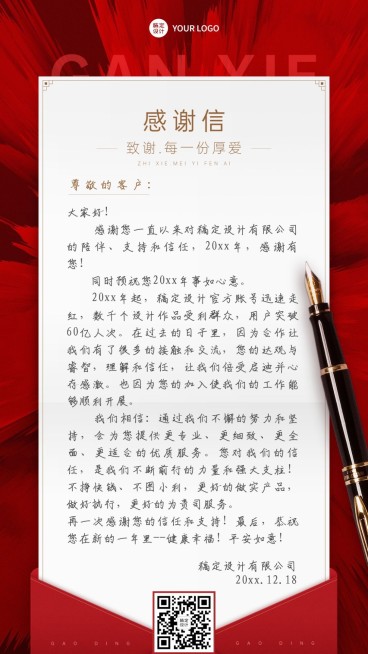 搞定设计 YOUR LOGO
GAN XIE
感谢信
致谢.每一份厚爱
ZHI XIE MEI YI FEN AI
尊敬的客户：
大家好！
感谢您一直以来对稿定设计有限公司
的陪伴、支持和信任，20xx年，感谢有
您！
同时预祝您20xx年事如心意。
20xx年起，稿定设计官方账号迅速走
红，数千个设计作品受利群众，用户突破
60亿人次。在过去的日子里，因为合作让
我们有了很多的接触和交流，您的达观与
睿智，理解和信任，让我们倍受启迪并心
存感激。也因为您的加入使我们的工作能
够顺利开展。
我们相信：通过我们不懈的努力和坚
持，会为您提供更专业、更细致、更全
面、更适合的优质服务。您对我们的信
任，是我们不断前行的力量和强大支柱！
不挣快钱、不图小利，更好的做实产品，
做好执行，更好的为贵司服务。
再一次感谢您的信任和支持！最后，恭祝
您在新的一年里--健康幸福！平安如意！
稿定设计有限公司
20xx.12.18
GAO DING
GAO DING